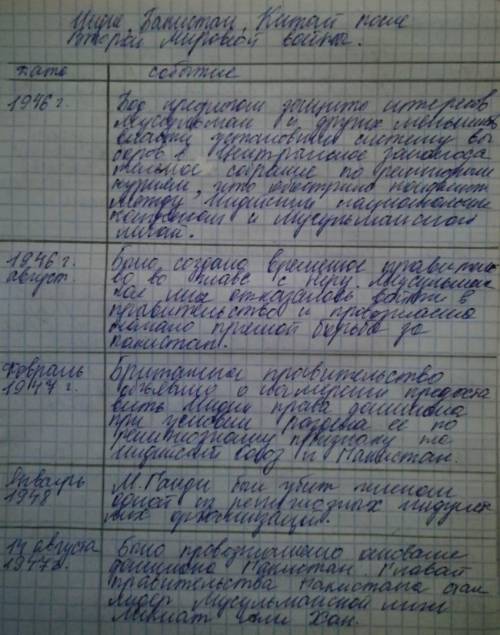 Индия, Пакистан, Китай после
Второй Мировой войны.
дата событие
1946 г. Под предлогом защиты интересов
мусульман и других меньшинств
власти установили систему вы
боров в центральное законода
тельное собрание по религиозным
куриям, что обострило конфликт
между Индийским национальным
конгрессом и Мусульманской
лигой.
1946 г. Было создано временное правительс
август. во во главе с Неру. Мусульманс
кая лига отказалась войти в
правительство и провозгласила
начало прямой борьбы за
Пакистан.
Февраль Британское правительство
1947 г. объявило о намерении предоста
вить Индии права доминиона
при условии раздела её по
религиозному признаку на
Индийский союз и Пакистан.
Январь М. Ганди был убит членом
1948 одной из религиозных индуист
ких организаций.
14 августа Было провозглашено основание
1947г. доминиона Пакистан. Главой
правительства Пакистана стал
лидер Мусульманской лиги
Лиакат Али Хан.